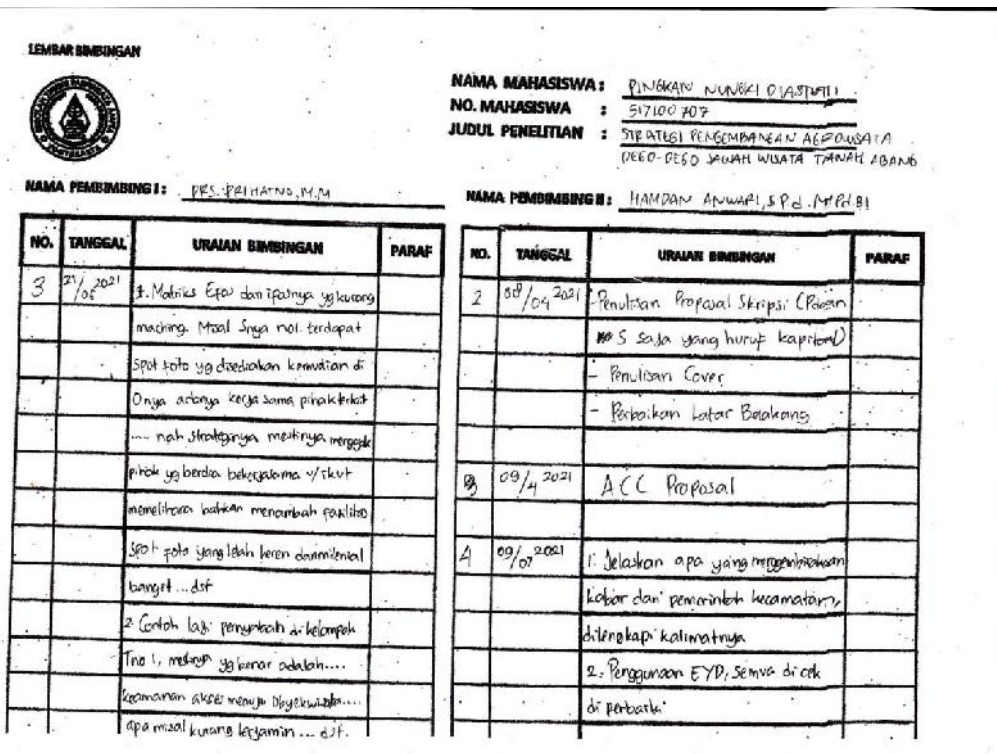 LEMBAR BIMBINGAN
NAMA MAHASISWA : PINGKAN NUNGKI DIASPUTI
NO. MAHASISWA : 517100707
JUDUL PENELITIAN : STRATEGI PENGEMBANGAN AGROWISATA
DEGO-DEGO SAWAH WISATA TANAH ABANG
NAMA PEMBIMBING I : DRS. PRIHATNO, M.M
NO. TANGGAL URAIAN BIMBINGAN PARAF
3 21/06 2021 1. Matriks Efas dan ifasnya yg kurang
maching. Misal Snya no1. terdapat
spot foto yg disediakan kemudian di
Onya adanya kerja sama pihak terkait
.... nah strateginya mestinya
pihak yg bersedia bekerjasama u/ ikut
memelihara bahkan menambah fasilitas
spot foto yang lebih keren dan milenial
banget ... dst
2. Contoh lagi penyebab di kelompok
T no 1, mestinya yg benar adalah....
keamanan akses menuju obyek wisata....
apa misal kurang terjamin ... dst.
NAMA PEMBIMBING II : HAMDAN ANWARI, S.Pd. M.Pd.BI
NO. TANGGAL URAIAN BIMBINGAN PARAF
2 08/04 2021 - Penulisan Proposal Skripsi (P dan
S saja yang huruf kapital)
- Penulisan Cover
- Perbaikan Latar Belakang
3 09/4 2021 ACC Proposal
4 09/07 2021 1. Jelaskan apa yang menggembirakan
kabar dari pemerintah kecamatan,
dilengkapi kalimatnya
2. Penggunaan EYD, semua di cek
di perbaiki